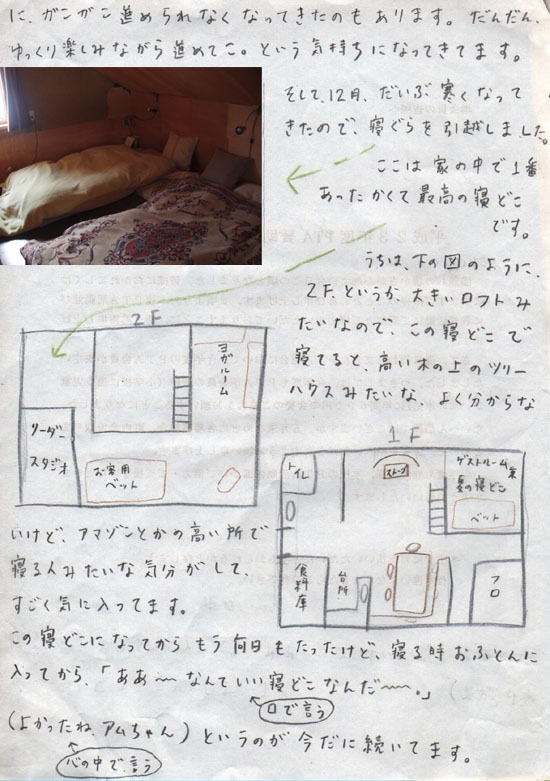 に、ガンガン進められなくなってきたのもあります。だんだん、
ゆっくり楽しみながら進めてこ。という気持ちになってきてます。
そして、12月、だいぶ寒くなって
きたので、寝ぐらを引越しました。
ここは家の中で1番
あったかくて最高の寝どこ
です。
うちは、下の図のように、
2Fというか、大きいロフトみ
たいなので、この寝どこで
寝てると、高い木の上のツリー
ハウスみたいな、よく分からな
2F
ヨガルーム
リーダー
スタジオ
お客用
ベット
1F
トイレ
ストーブ
ゲストルーム兼
夏の寝どこ
ベット
食料庫
台所
フロ
いけど、アマゾンとかの高い所で
寝る人みたいな気分がして、
すごく気に入ってます。
この寝どこになってからもう何日もたったけど、寝る時おふとんに
入ってから、「ああ〜なんていい寝どこなんだ〜。」
口で言う
(よかったね、アムちゃん)というのが今だに続いてます。
心の中で言う